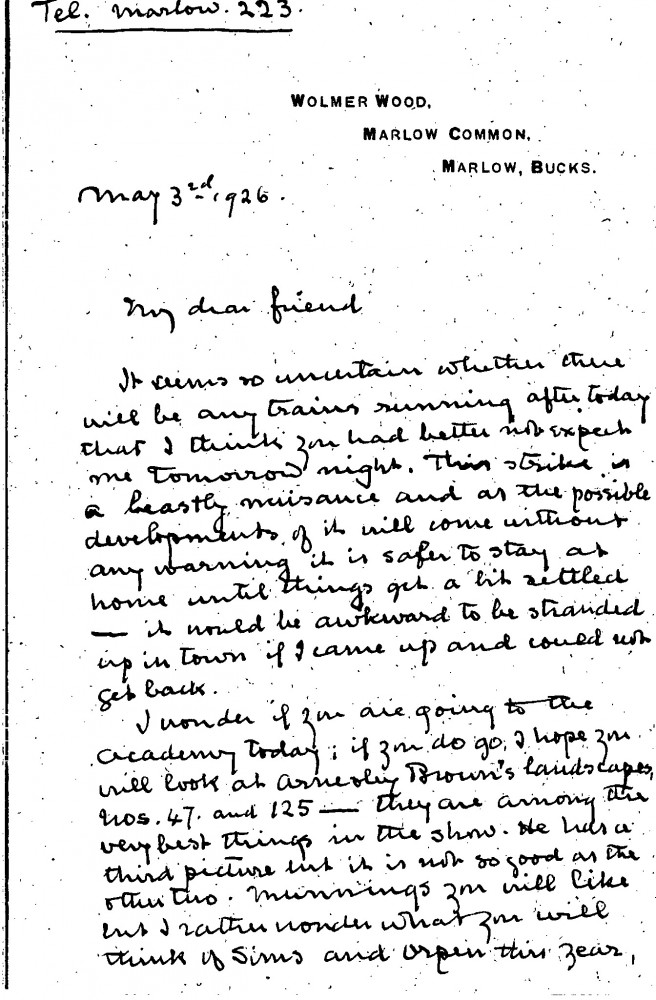 Tel. Marlow. 223.
WOLMER WOOD,
MARLOW COMMON,
MARLOW, BUCKS.
May 3rd. 1926.
My dear friend
It seems so uncertain whether there
will be any trains running after today
that I think you had better not expect
me tomorrow night. This strike is
a beastly nuisance and as the possible
developments of it will come without
any warning it is safer to stay at
home until things get a bit settled
— it would be awkward to be stranded
up in town if I came up and could not
get back.
I wonder if you are going to the
Academy today; if you do go, I hope you
will look at Arnesley Brown's landscapes,
Nos. 47. and 125 — they are among the
very best things in the show. He has a
third picture but it is not so good as the
other two. Munnings you will like
but I rather wonder what you will
think of Sims and Orpen this year,